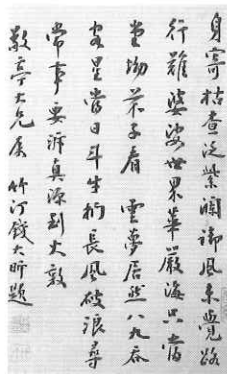 身寄枯查泛紫瀾御風未覺路
行難婆娑世界華嚴海只當
堂坳芥子看 雲夢居然八九吞
客星當日斗牛捫長風破浪尋
常事要溯真源到火敦
敬亭大兄屬 竹汀錢大昕題